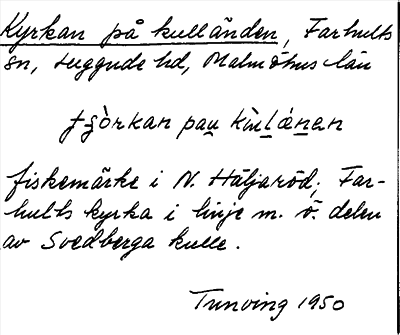 Kyrkan på kulländen, Farhults
sn, Luggude hd, Malmöhus län
fiskemärke i N. Häljaröd; Far-
hults kyrka i linje m. ö. delen
av Svedberga kulle.
Tunving 1950